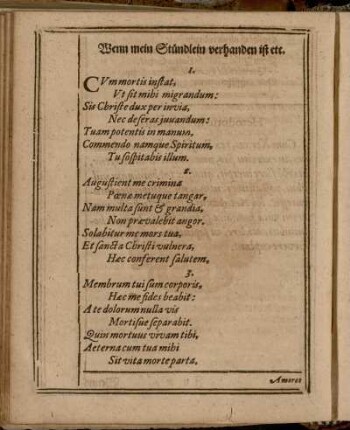 Wenn mein Stündlein verhanden ist etc.
1.
CVm mortis instat,
Vt sit mihi migrandum:
Sis Christe dux per invia,
Nec deseras juvandum:
Tuam potentis in manum,
Commendo namque Spiritum,
Tu sospitabis illum.
2.
Augustient me crimina
Pœnæ metuque tangar,
Nam multa sunt & grandia,
Non prævalebit angor.
Solabitur me mors tua,
Et sancta Christi vulnera,
Hæc conferent salutem,
3.
Membrum tui sum corporis,
Hæc me fides beabit:
A te dolorum nulla vis
Mortisue separabit.
Quin mortuus vivam tibi,
Aeterna cum tua mihi
Sit vita morte parta.